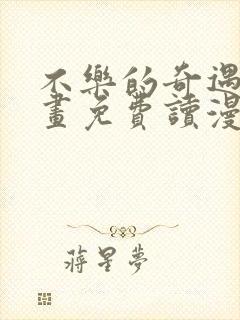 不樂的奇遇
畫免費讀漫
蔣星夢